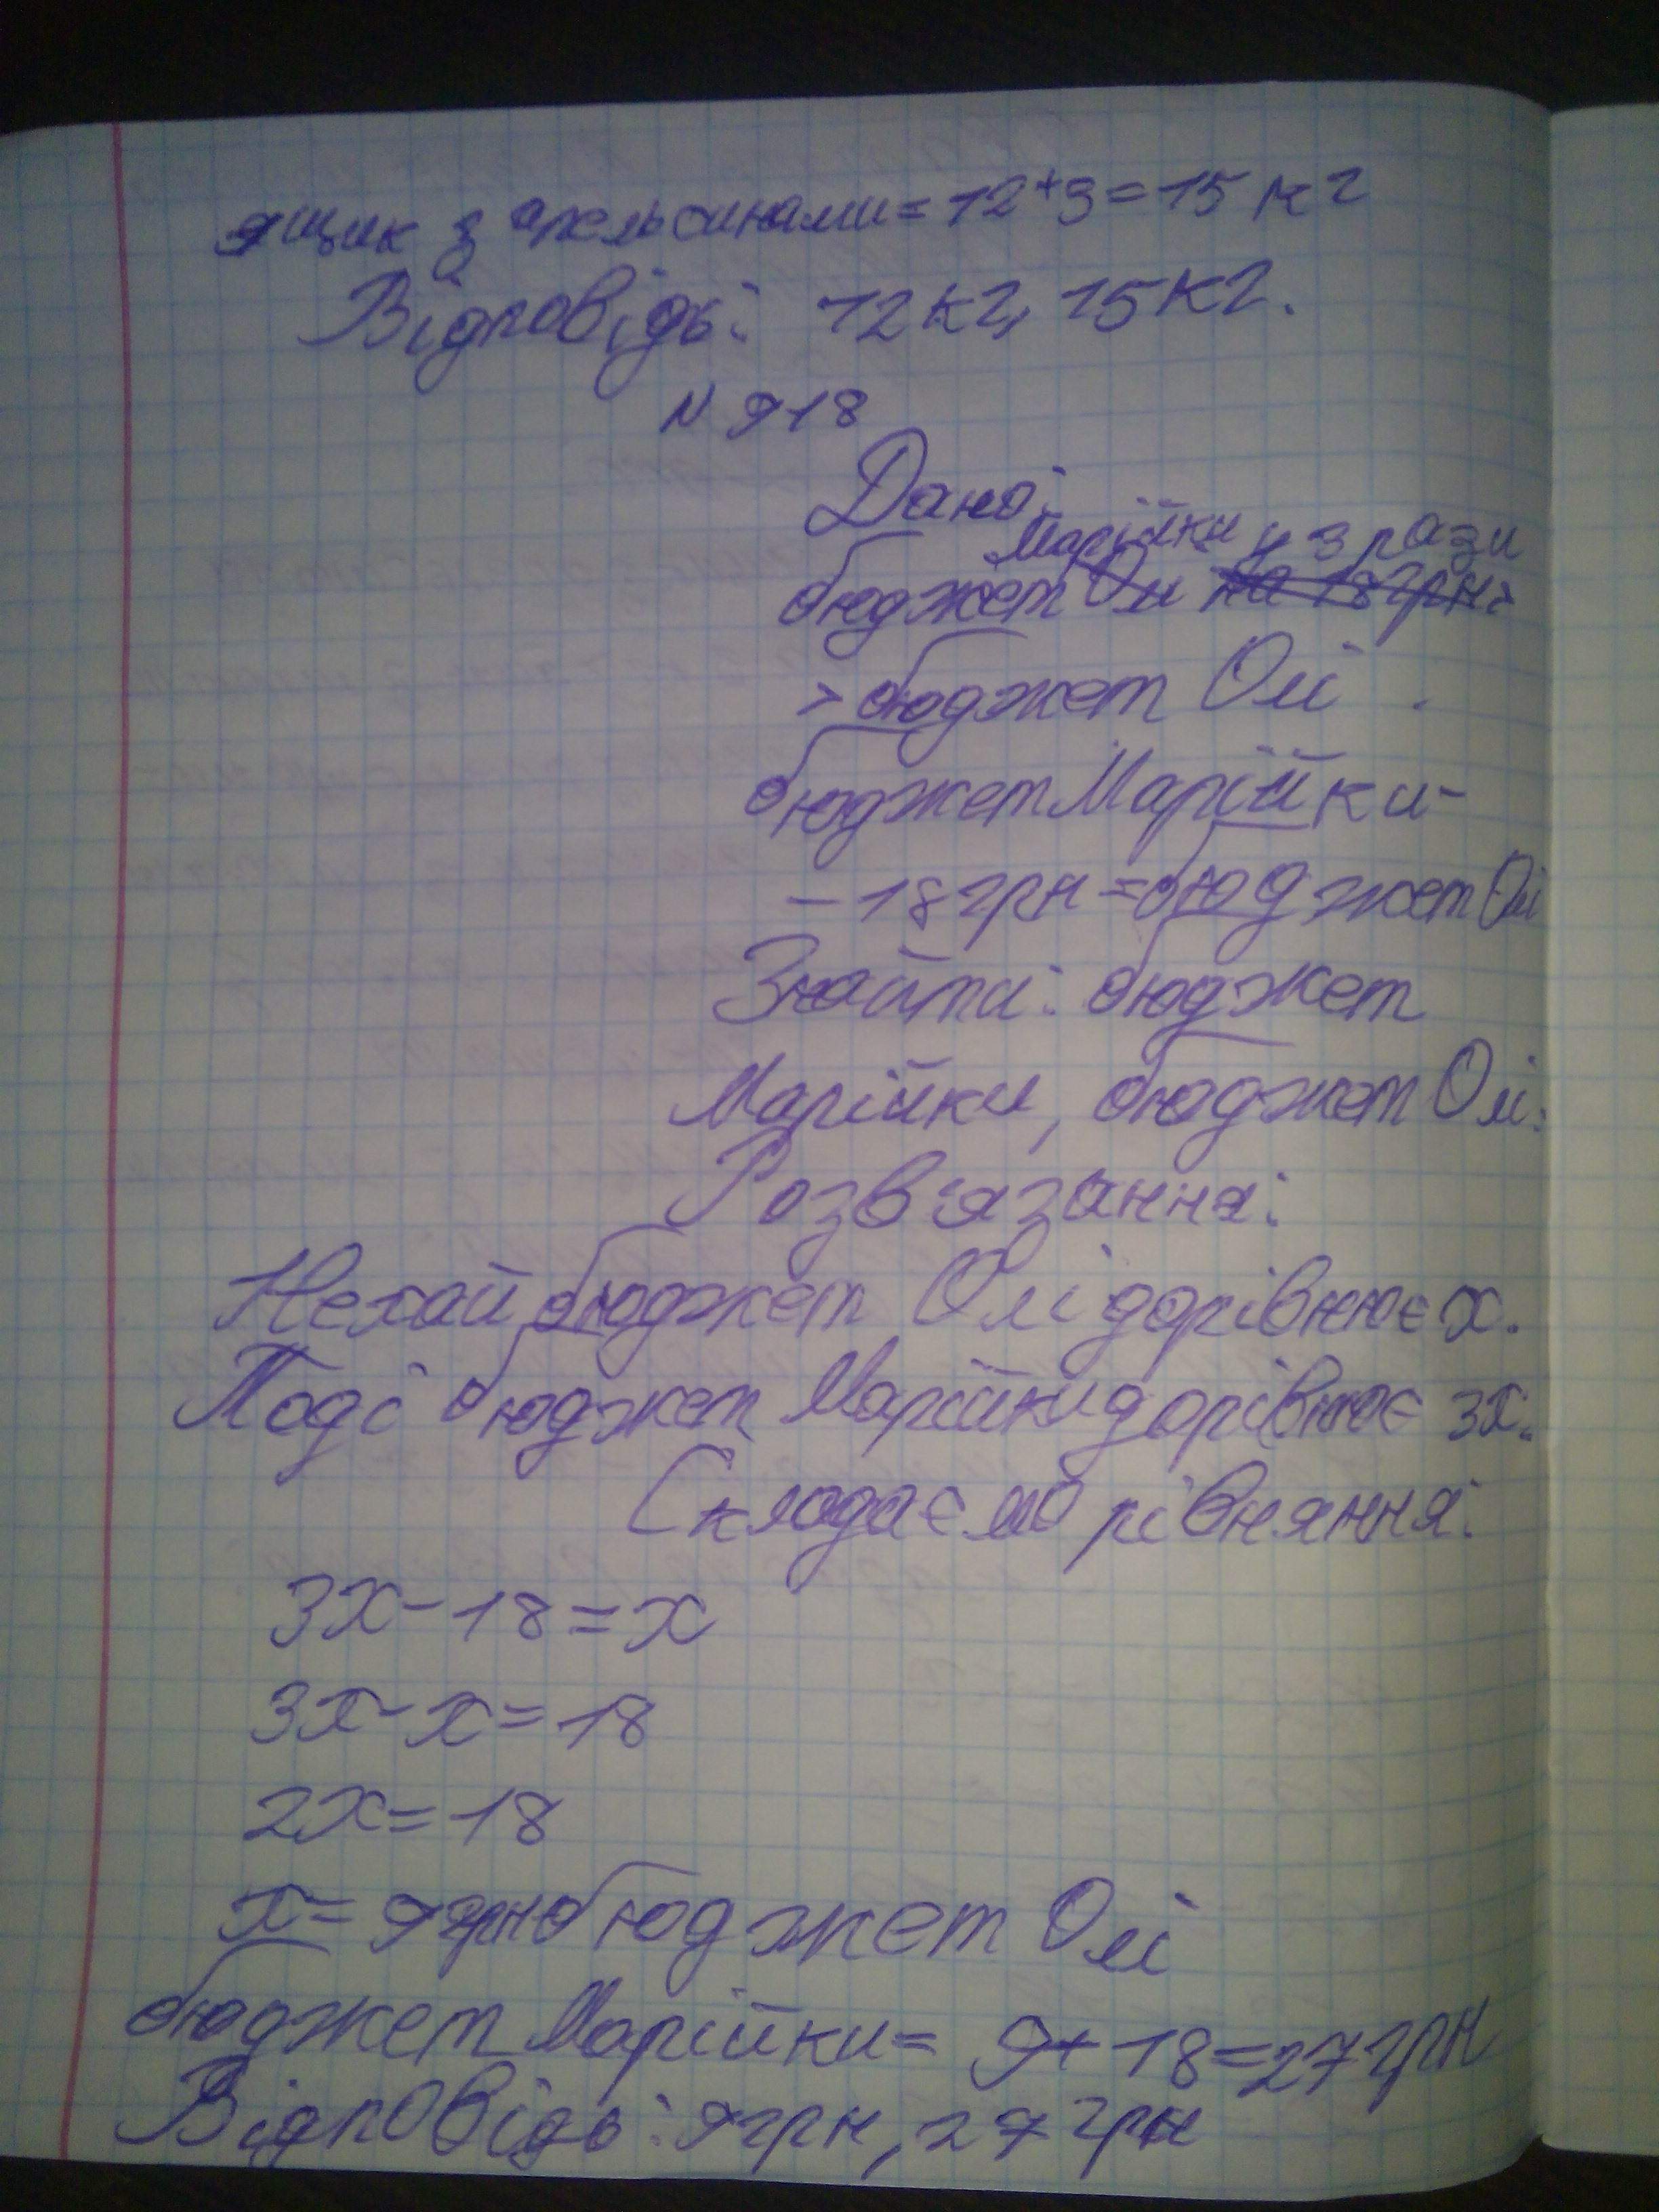 ящик з апельсинами = 12 + 3 = 15 кг
Відповідь: 12 кг, 15 кг.
№ 918
Дано:
Марійки у 3 рази
бюджет Олі на 18 грн >
> бюджет Олі .
бюджет Марійки -
- 18 грн = бюджет Олі
Знайти: бюджет
Марійки, бюджет Олі.
Розв'язання:
Нехай бюджет Олі дорівнює x.
Тоді бюджет Марійки дорівнює 3x.
Складаємо рівняння:
3x - 18 = x
3x - x = 18
2x = 18
x = 9 грн бюджет Олі
бюджет Марійки = 9 + 18 = 27 грн
Відповідь: 9 грн, 27 грн